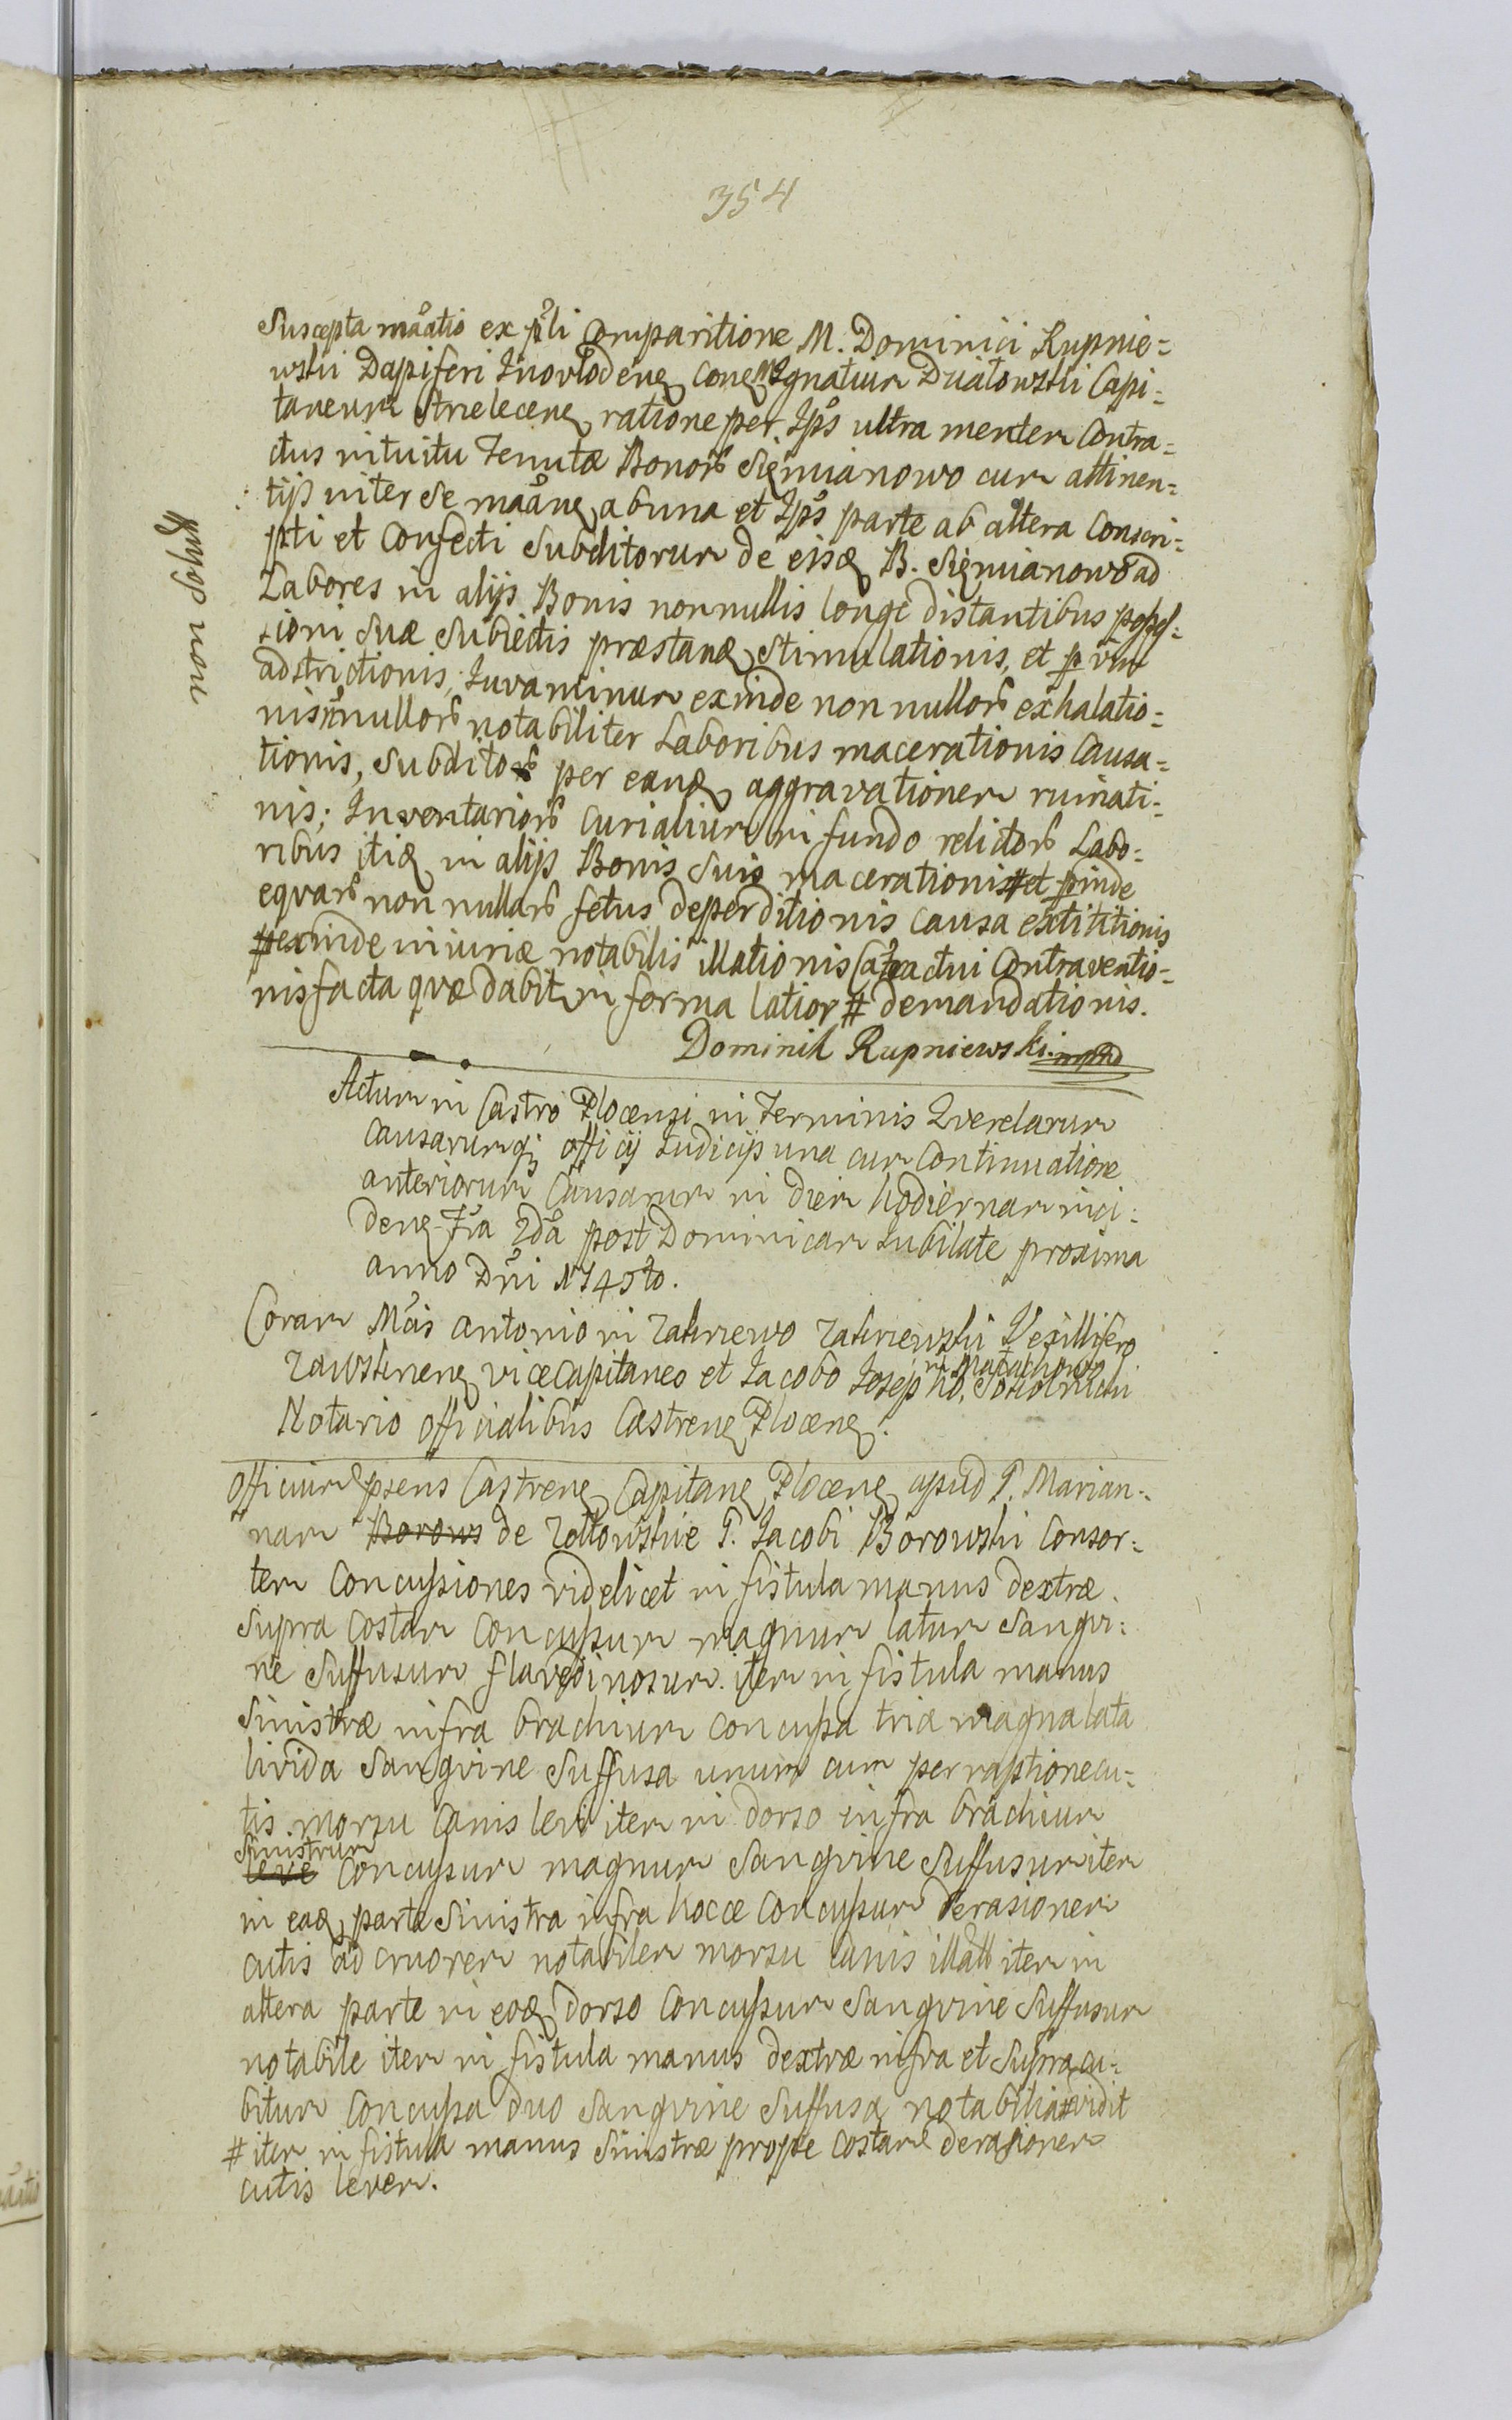 354
Suscepta mãatio ex psti Comparitione M. Dominici Rupnie=
wski Dapiferi Inovlodens conꝗ M Ignatium Dziatowski Capi=
taneum Strzelecens ratione per Ips ultra mentem Contra=
ctus intuitu Tenutæ Bonorb Sięmianowo cum attinen=
tijs inter se mãans ab una et Ips parte ab altera Conscri=
pti et Confecti Subditorum de eisd B. Sięmianowo ad
Labores in alijs Bonis nonnullis longe distantibus possess=
ioni Suæ Subiectis præstand Stimulationis, et p vim
adstrictionis, Iuvaminum exinde non nullorb exhalatio=
nis nnullorb notabiliter Laboribus macerationis Causa=
tionis, Subditorb per eand aggravationem ruinati=
nis; Inventariorb Curialium in fundo relictorb Labo=
ribus itid in alijs Bonis Suis macerationis # et pinde
equarb non nullarb fetus deperditionis causa extititionis
# exinde iniuriæ notabilis illationis Catractui Contraventio=
nis facta qvæ dabit in forma latior # demandationis.
Dominik Rupniewski mpd
non
Actum in Castro Plocensi in Terminis Qverelarum
Causarumq; officij Iudicijs una cum Continuatione
anteriorum Causarum in diem hodiernam inci=
dens Fra 2da post Dominicam Iubilate proxima
anno Dni 1745to.
Coram Mcis Antonio in Zakrzewo Zakrzewski Vexillifero
Zawskrzens vice Capitaneo et Iacobo Iosepho in Małachowo Sokolnicki
Notario officialibus Castrens Plocens.
Officium psens Castrens Capitans Plocens apud G. Marian=
nam Borows de Zołtowskie G. Iacobi Borowski Consor=
tem Concussiones videlicet in fistula manus dextræ
supra Costam Concussum magnum latum Sangvi=
ne Suffusum flavedinosum. item in fistula manus
Sinistræ infra brachium concussa tria magna lata
livida Sangvine Suffusa unum cum perraptione cu=
tis morsu canis levi item in dorso infra brachium
Sinistrum
leve Concussum magnum Sangvine Suffusum item
in ead parte Sinistra infra hocce Concussum derasionem
cutis ad cruorem notabilem morsu canis illatt item in
altera parte in eod dorso Concussum Sangvine Suffusum
notabile item in fistula manus dextræ infra et Supra cu=
bitum Concussa duo Sangvine Suffusa notabilia # vidit
# item in fistula manus Sinistræ prope Costam derasionem
cutis levem.